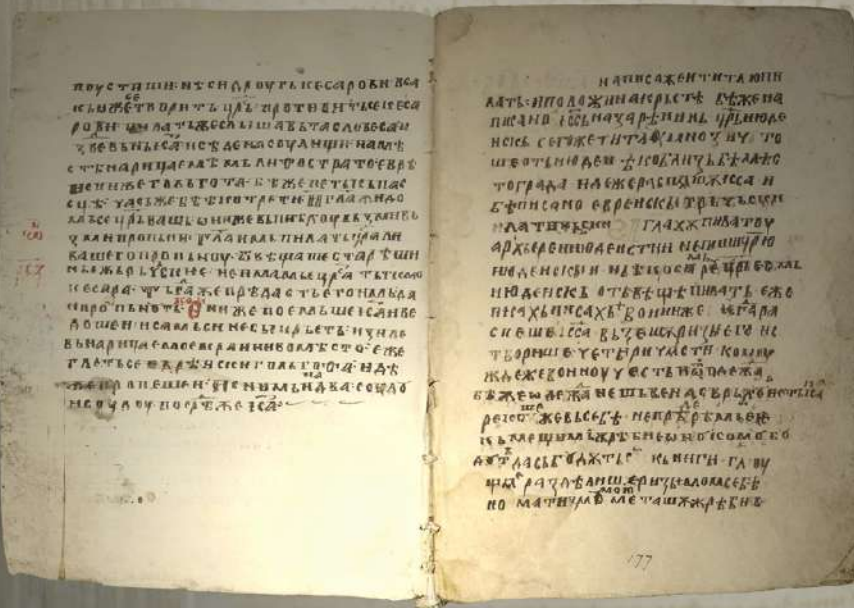 поустиши· нѣси дроугь кесарови вса
кь иже се творить цр҃ь противить се кеса
рови· пилать же слышавь та словеса и
зведе вьнь іс҃а и сѣде на соудищи на мѣ
стѣ нарицаемѣмь литостратоеврѣ
иски же гольгота· бѣ же петькь пас
цѣ· часъ же бѣ ꙗко трети и гл҃а июдо
мъ се цр҃ь вашь они же вьпи вьзми вь
зми пропьни· гл҃а имь пилать цр҃а ли
вашего пропьноу· старѣиши
не имамы цр҃а тькмо
кесара· тъгда же прѣдасть его имь да
и пропьноть· Они же поемьше іс҃а и ве
доше и· и самь си несы крьсть· изиде
вь нарицаемое краниево мѣсто· еже
гл҃еть се еврѣиски гольгота· идѣ
же и пропеше и· и с нимь ина два· сюдоу
и сюдоу посрѣже іс҃а
написа же и титла пи
лать· и положи на крьстѣ бѣ же на
писано іс҃ь назарѣнинь цр҃ь июде
искь сего же титла мнози что
ше оть июдеи ꙗко близь бѣ мѣс
то града идеже распѧшѫ іс҃са и
бѣ писано евреискы грьчьскы
и латиньскы гл҃ахѫ пилатоу
архьереи июдеистии не пиши цр҃ю
июдеискыи нь ꙗко самь рече цр҃ь есмь
июдеискь отьвѣща пилать еже
писахь писахь вони же егда ра
спеше іс҃са вьзеше ризы его и с
творише четыри части комоу
ждо же воиноу честь и одежа
бѣ же одежа не шьвена сврьхоу
реше же вь себѣ не прѣдерѣмь ее
нь мещимь жрѣбие о н комоу бо
дасьбоудеть кьниги гл҃оу
щы раздѣлише ризы моѧ себѣ
и о матизмь мои меташѫ жрѣбиѥ
177